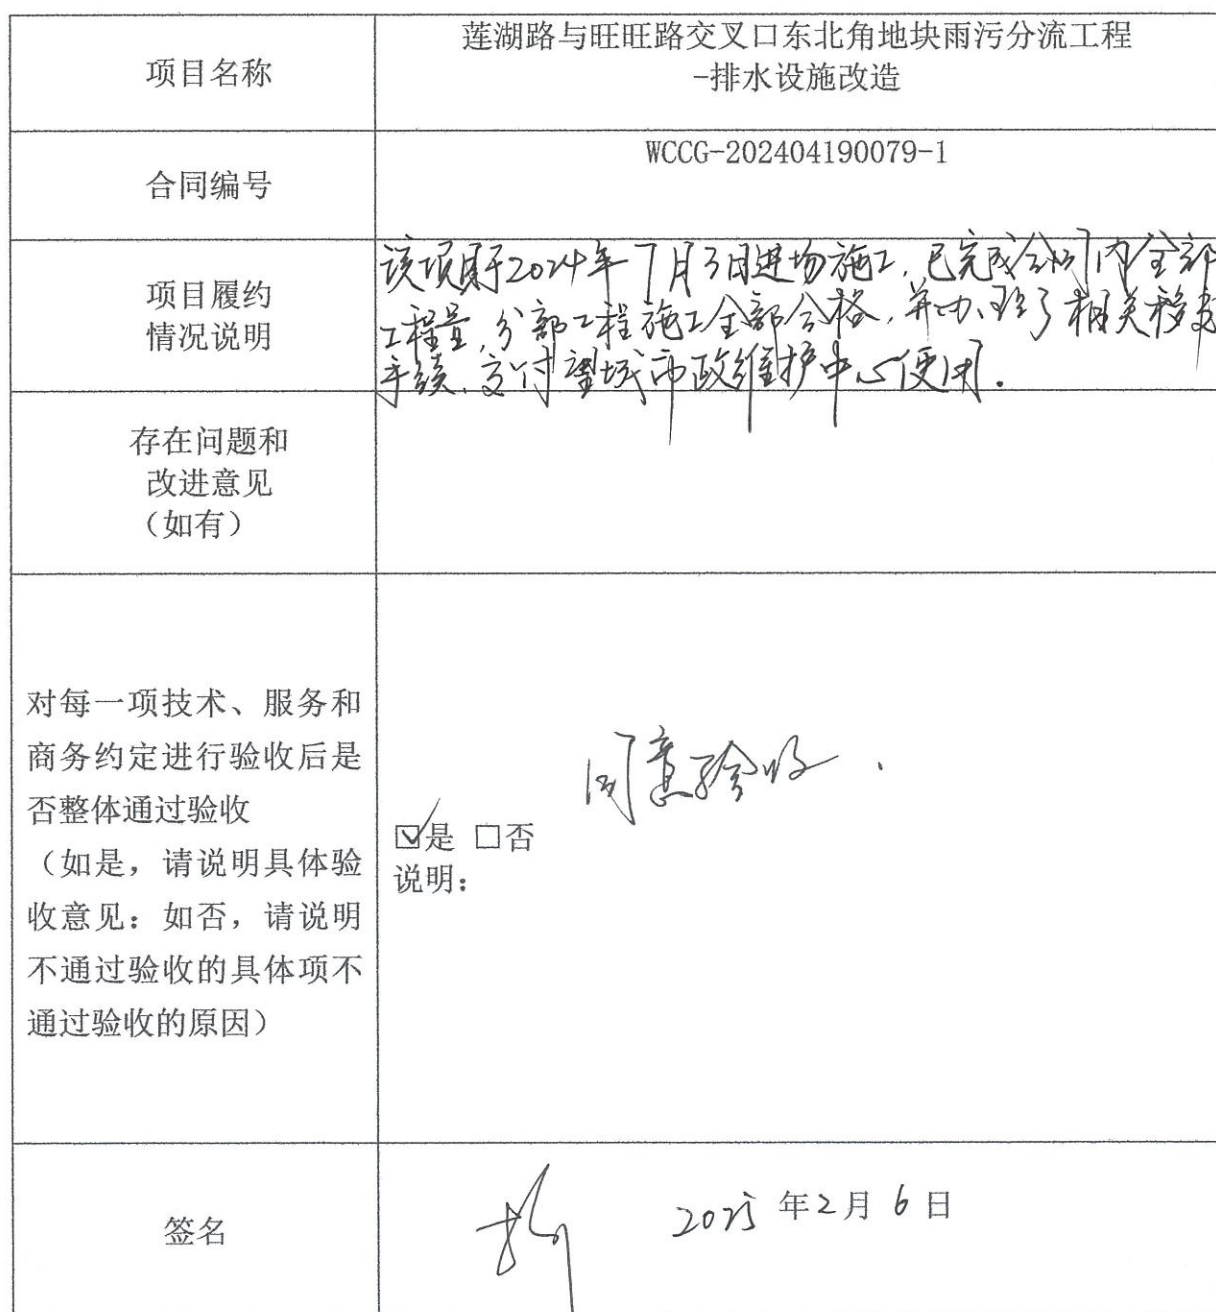 项目名称
莲湖路与旺旺路交叉口东北角地块雨污分流工程
-排水设施改造
合同编号
WCCG-202404190079-1
项目履约
情况说明
该项目于2024年7月3日进场施工,已完成合同内全部
工程量,分部工程施工全部合格,并办理了相关移交
手续、交付望城市政维护中心使用.
存在问题和
改进意见
（如有）
对每一项技术、服务和
商务约定进行验收后是
否整体通过验收
（如是，请说明具体验
收意见：如否，请说明
不通过验收的具体项不
通过验收的原因）
同意验收.
☑是 □否
说明：
签名
2025年2月6日